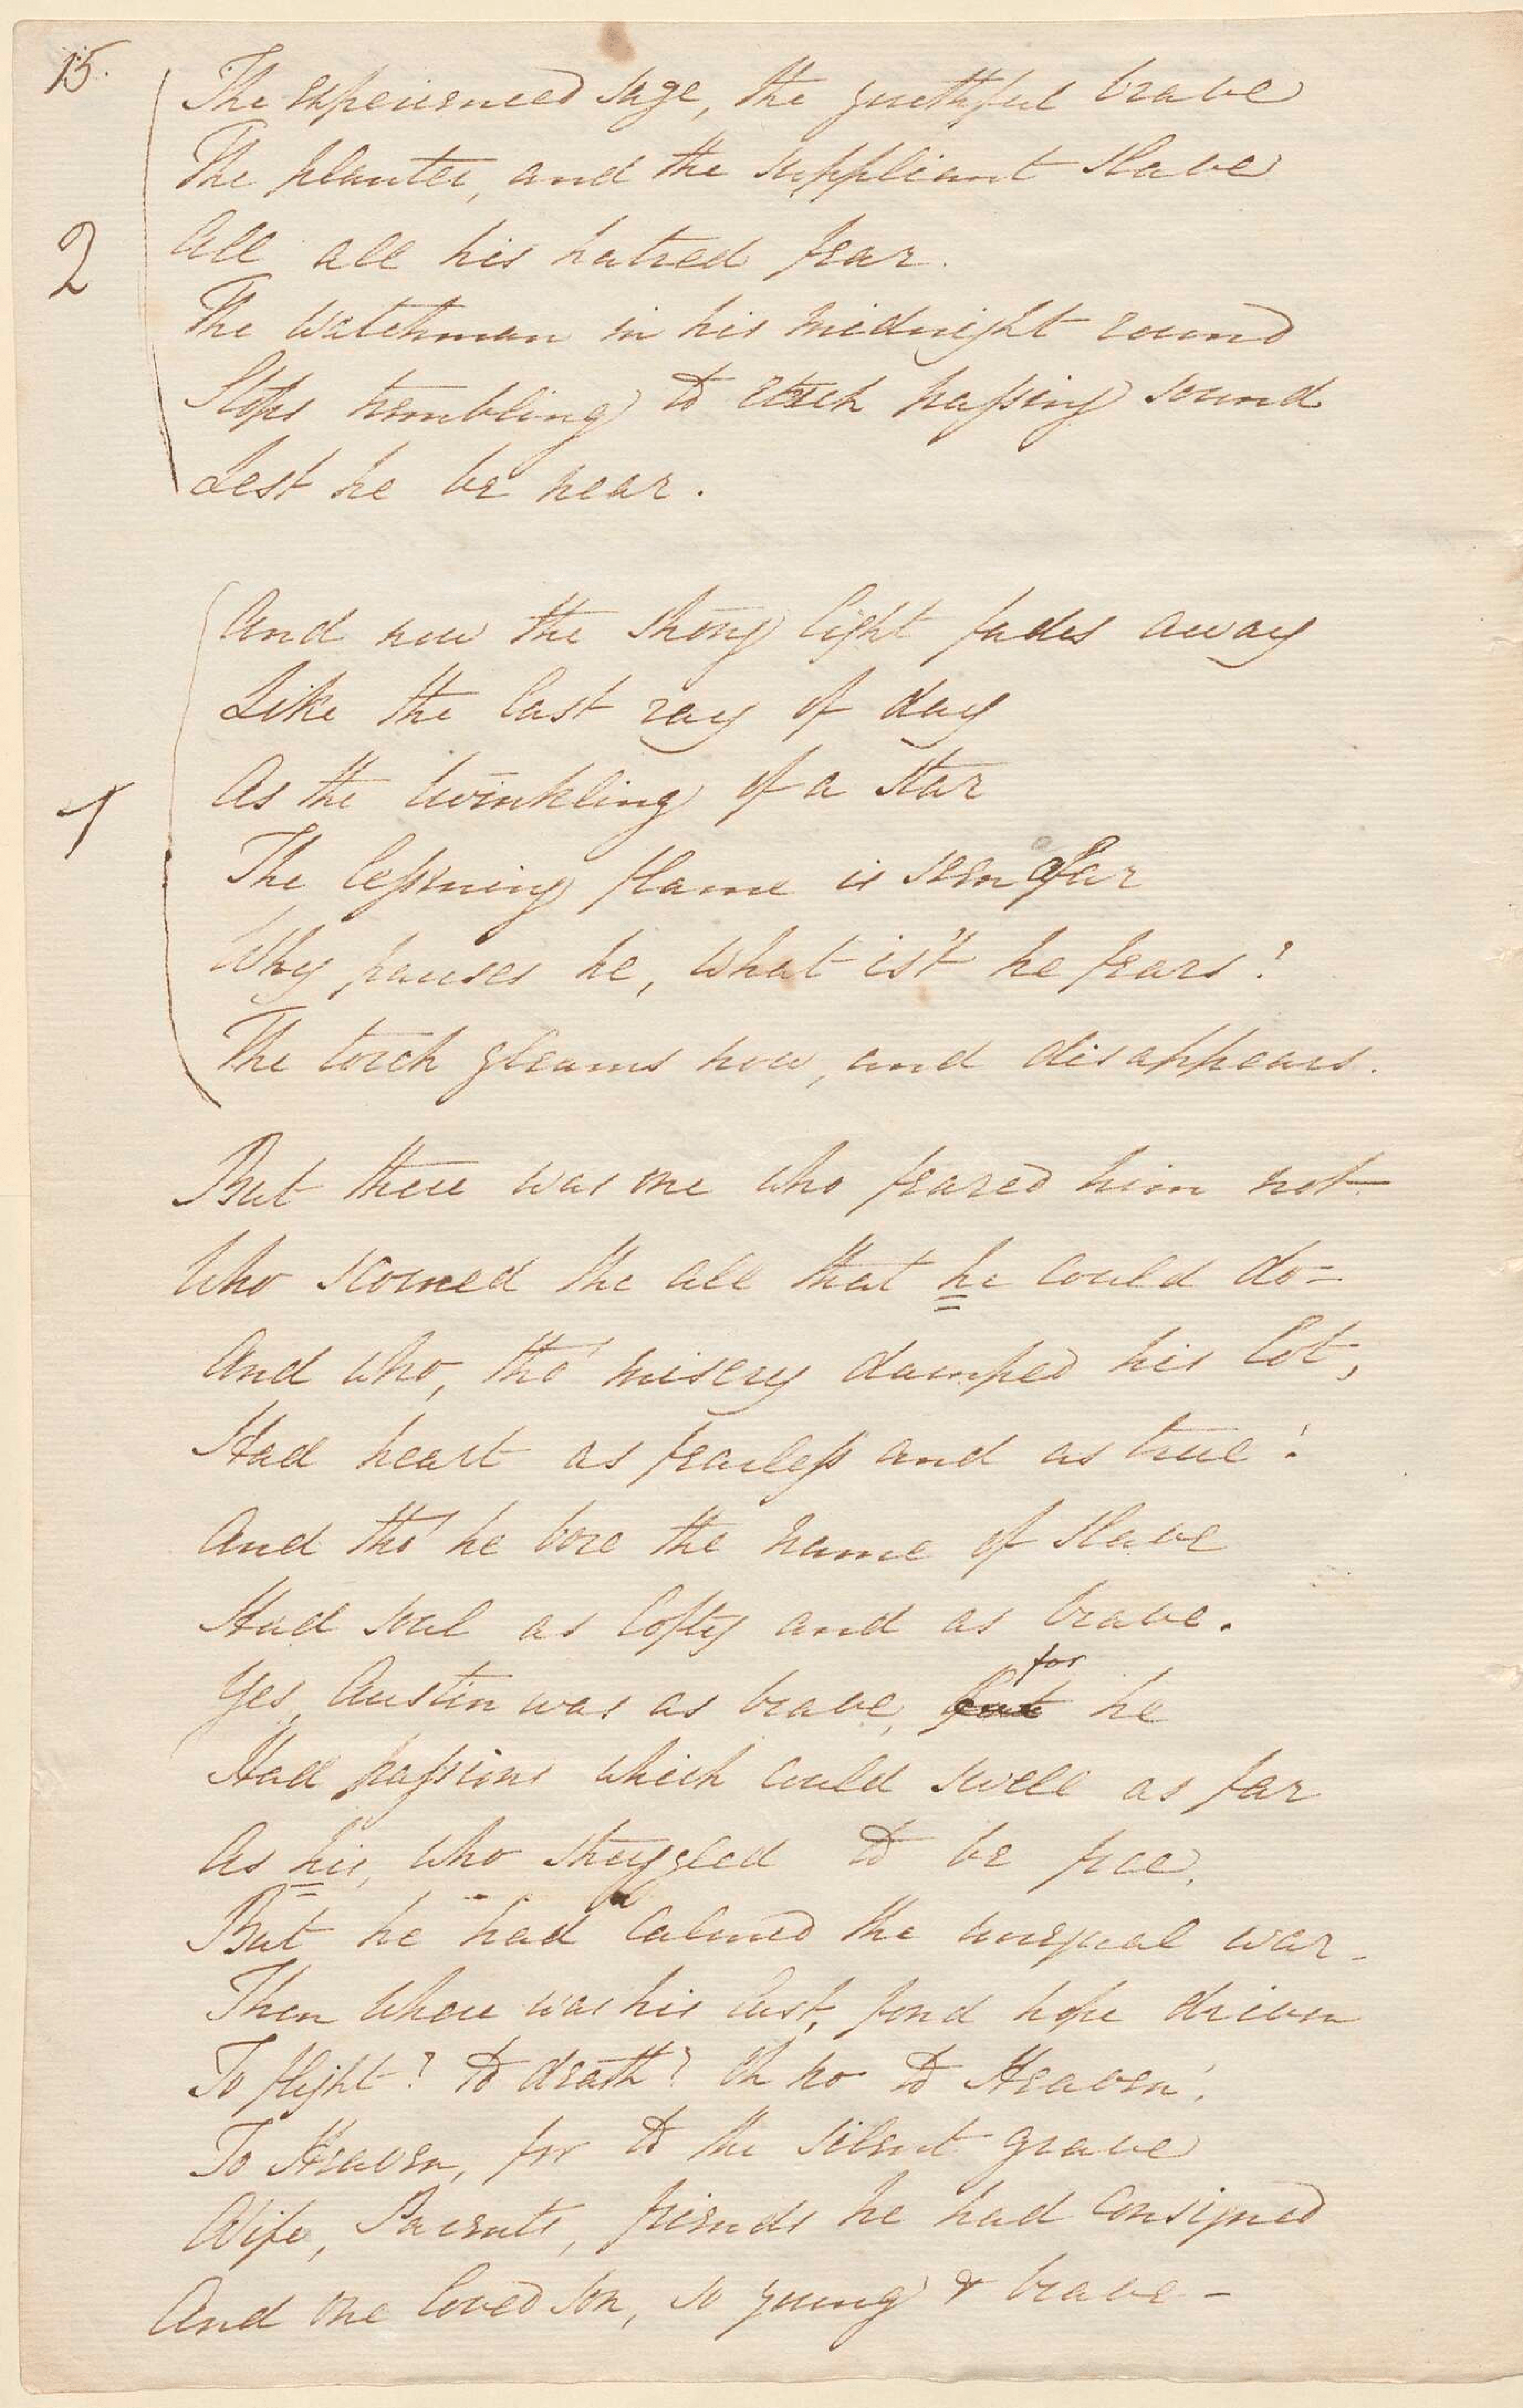 15.
The experienced sage, the youthful brave
The planter, and the suppliant slave
2
All all his hatred fear.
The watchman in his midnight round
Stops trembling to each passing sound
Lest he be near.
And now the strong light fades away
Like the last ray of day
As the twinkling of a star
1
The lessening flame is seen afar
Why pauses he, what is't he fears?
The torch gleams now, and disappears.
But there was one who feared him not
Who scorned the all that he could do–
And who, tho' misery damped his lot,
Had heart as fearless and as true!
And tho' he bore the name of slave
Had soul as lofty and as brave.
for
Yes, Austin was as brave, but he
Had passions which could swell as far
As his, who struggled to be free.
But he had calmed the unequal war–
Then where was his last, fond hope driven
To flight? to death? Oh no to Heaven!
To Heaven, for to the silent grave
Wife, Parents, friends he had consigned
And one loved son, so young & brave–